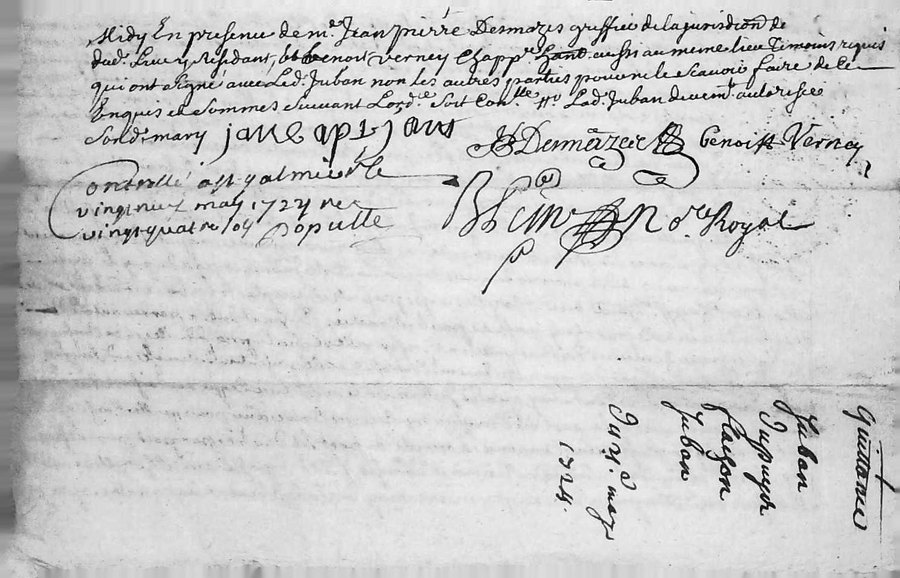 Midy En presence de m.e Jean pierre Desmazes greffier de la jurisdiōn de
dud. Lieu y Residant, et benoit Verney Chapp.r habt. aussi au meme lieu Temoins requis
qui ont signé avec Led. Juban non les autres parties pour ne le scavoir faire de ce
Enquis et sommes suivant Lord.ce Soit Con.lle Lad. Juban devem.t autorisée
Sond. mary
Desmazes benoist Verney
Controllé a st galmier le
vingt neuf may 1724 re
vingt quatre sols
N.re Royal
Quittance
Juban
Dupuy
flachon
Juban
Du 21.e may
1724.